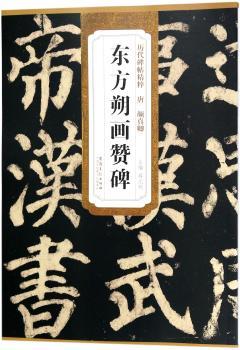 历代碑帖精粹 唐 颜真卿
东方朔画赞碑
漢武
帝漢書